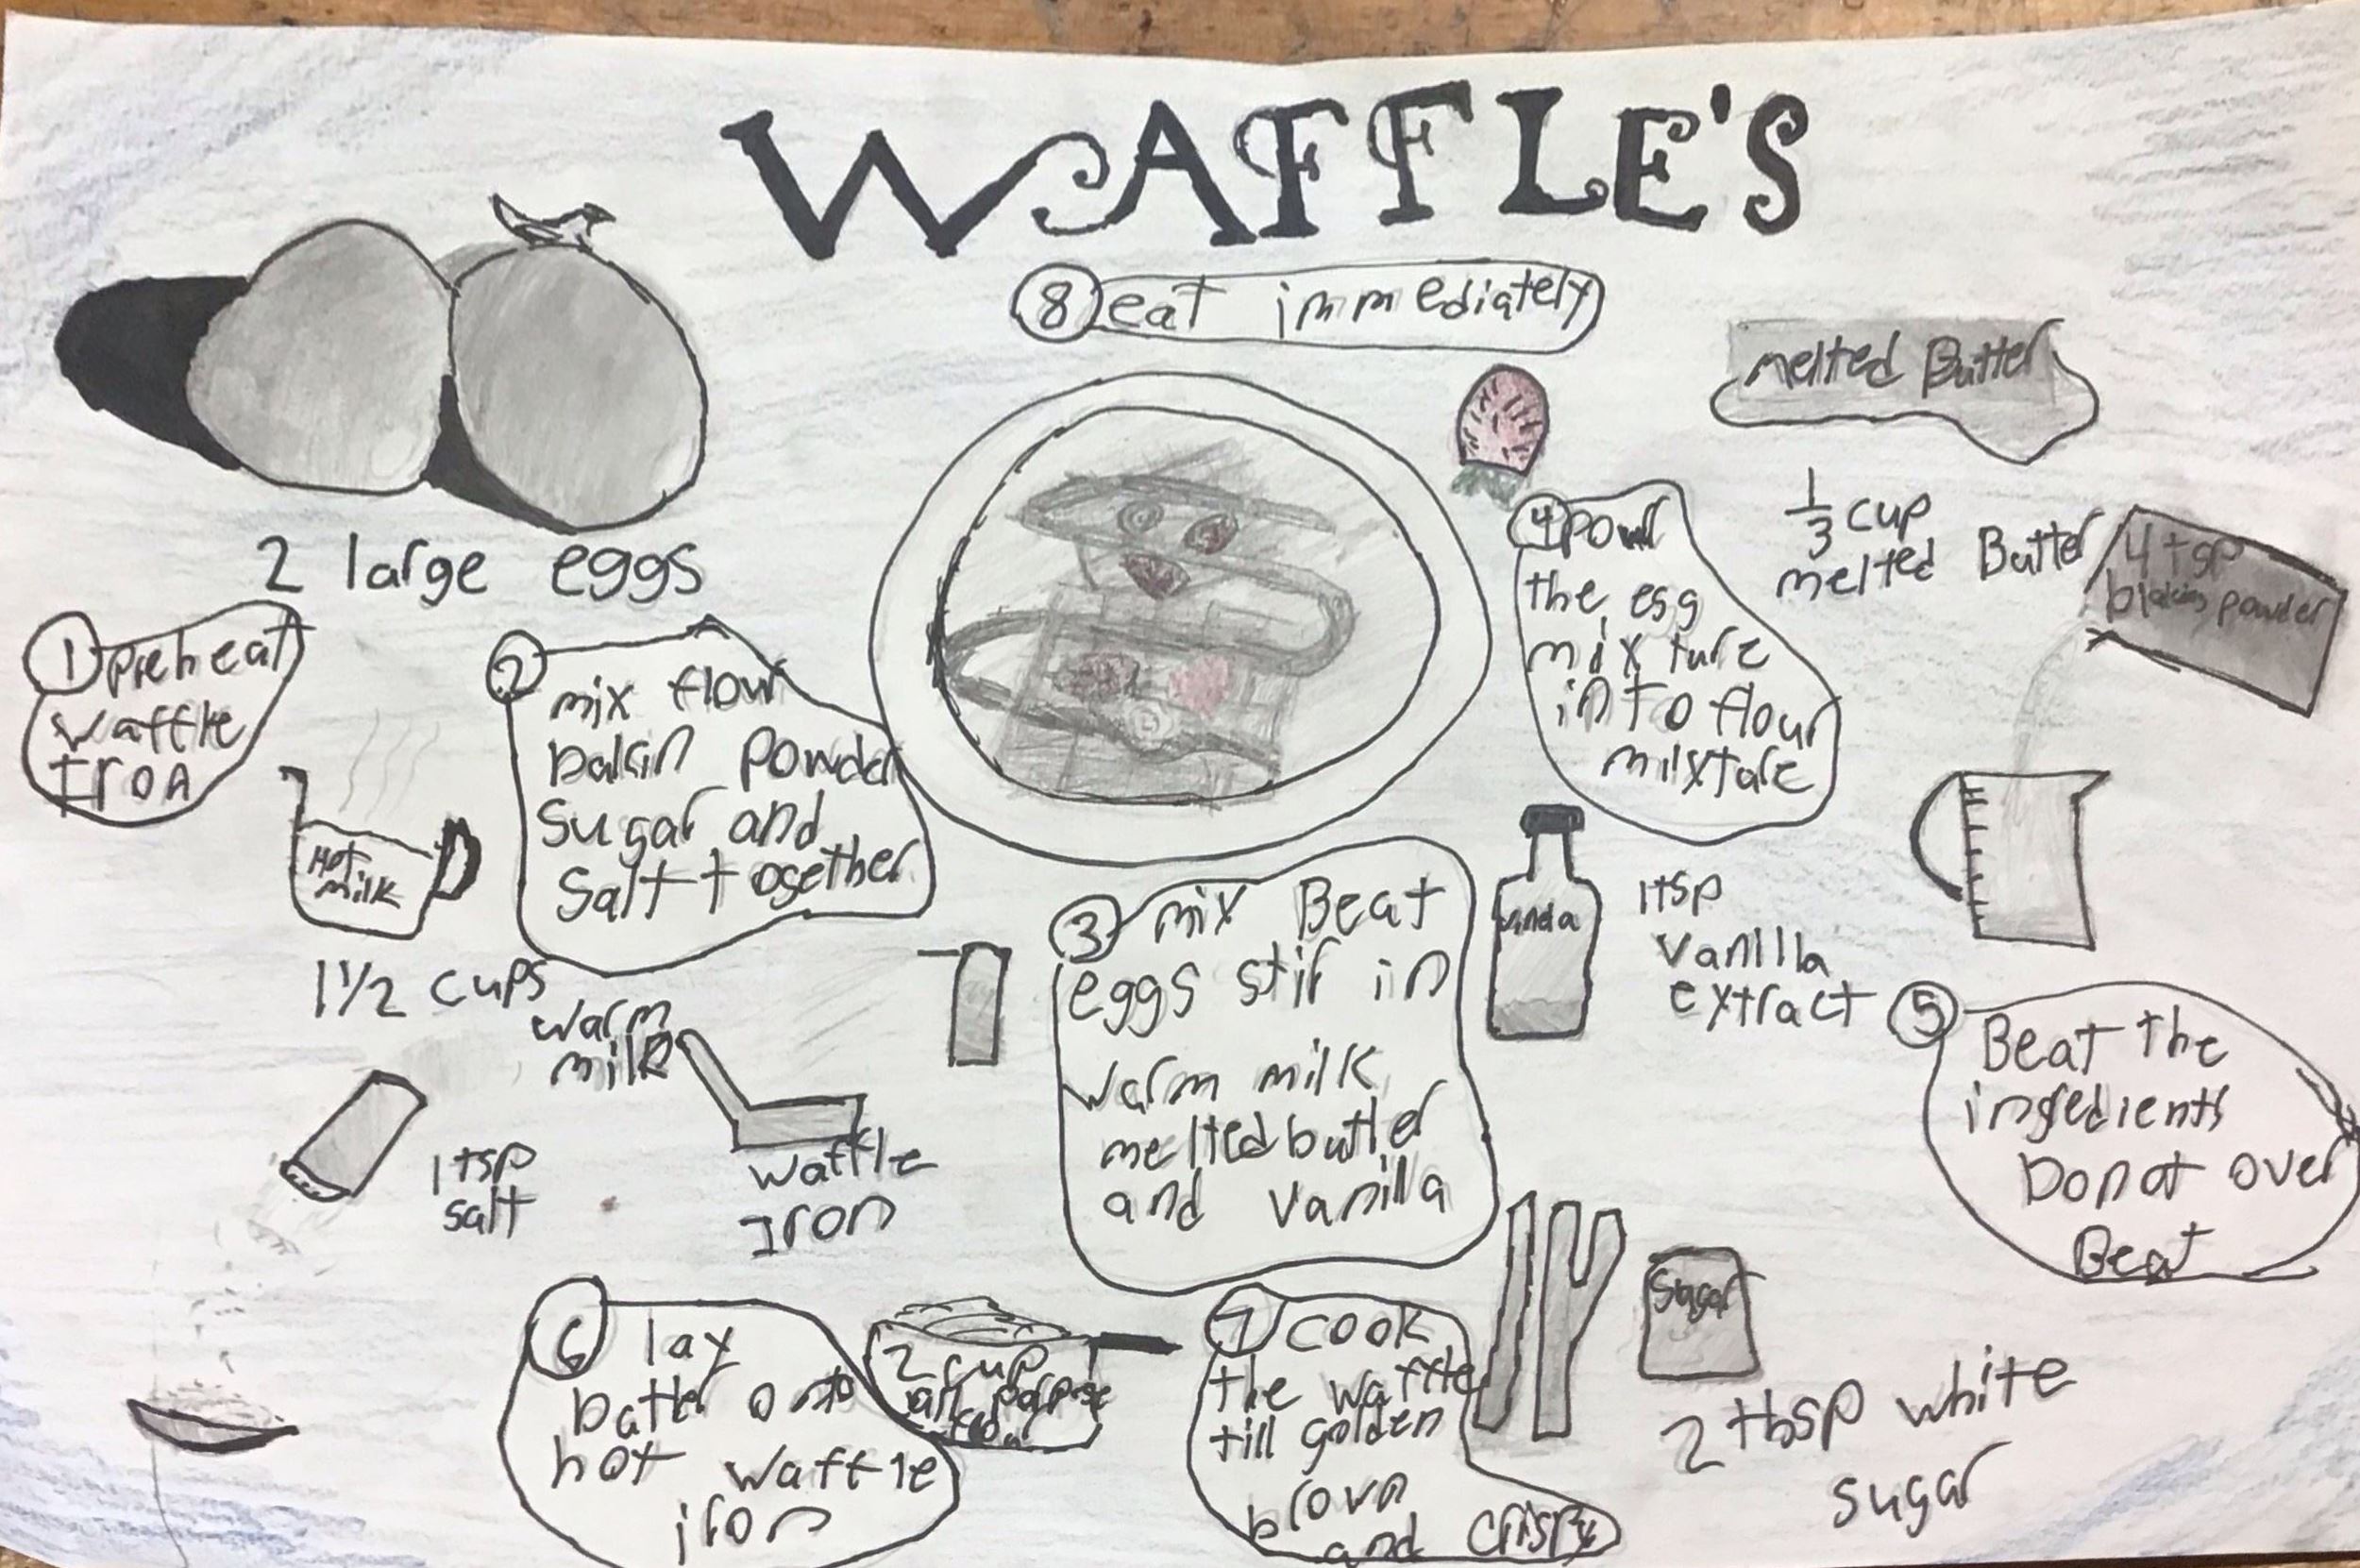 WAFFLE'S
8 eat immediately
melted Butter
1/3 cup
melted Butter
4 tsp
powder
2 large eggs
1 preheat
waffle
Iron
2
mix flour
bakin powder
Sugar and
Salt together
4 pour
the egg
mixture
into flour
milxture
Hot
milk
1 1/2 cups
warm
milk
3 mix Beat
eggs stir in
warm milk
melted butter
and vanilla
1 tsp
vanilla
extract
5
Beat the
ingredients
Do not over
Beat
1 tsp
salt
waffle
Iron
6 lay
batter onto
hot waffle
iron
2 cup
all
7 cook
the waffle
till golden
brown
and crispy
Sugar
2 tbsp white
sugar